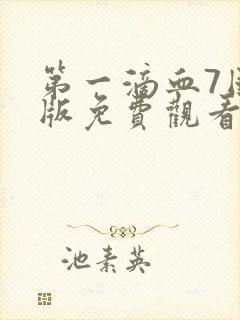 第一滴血7
版免費觀看
池素英